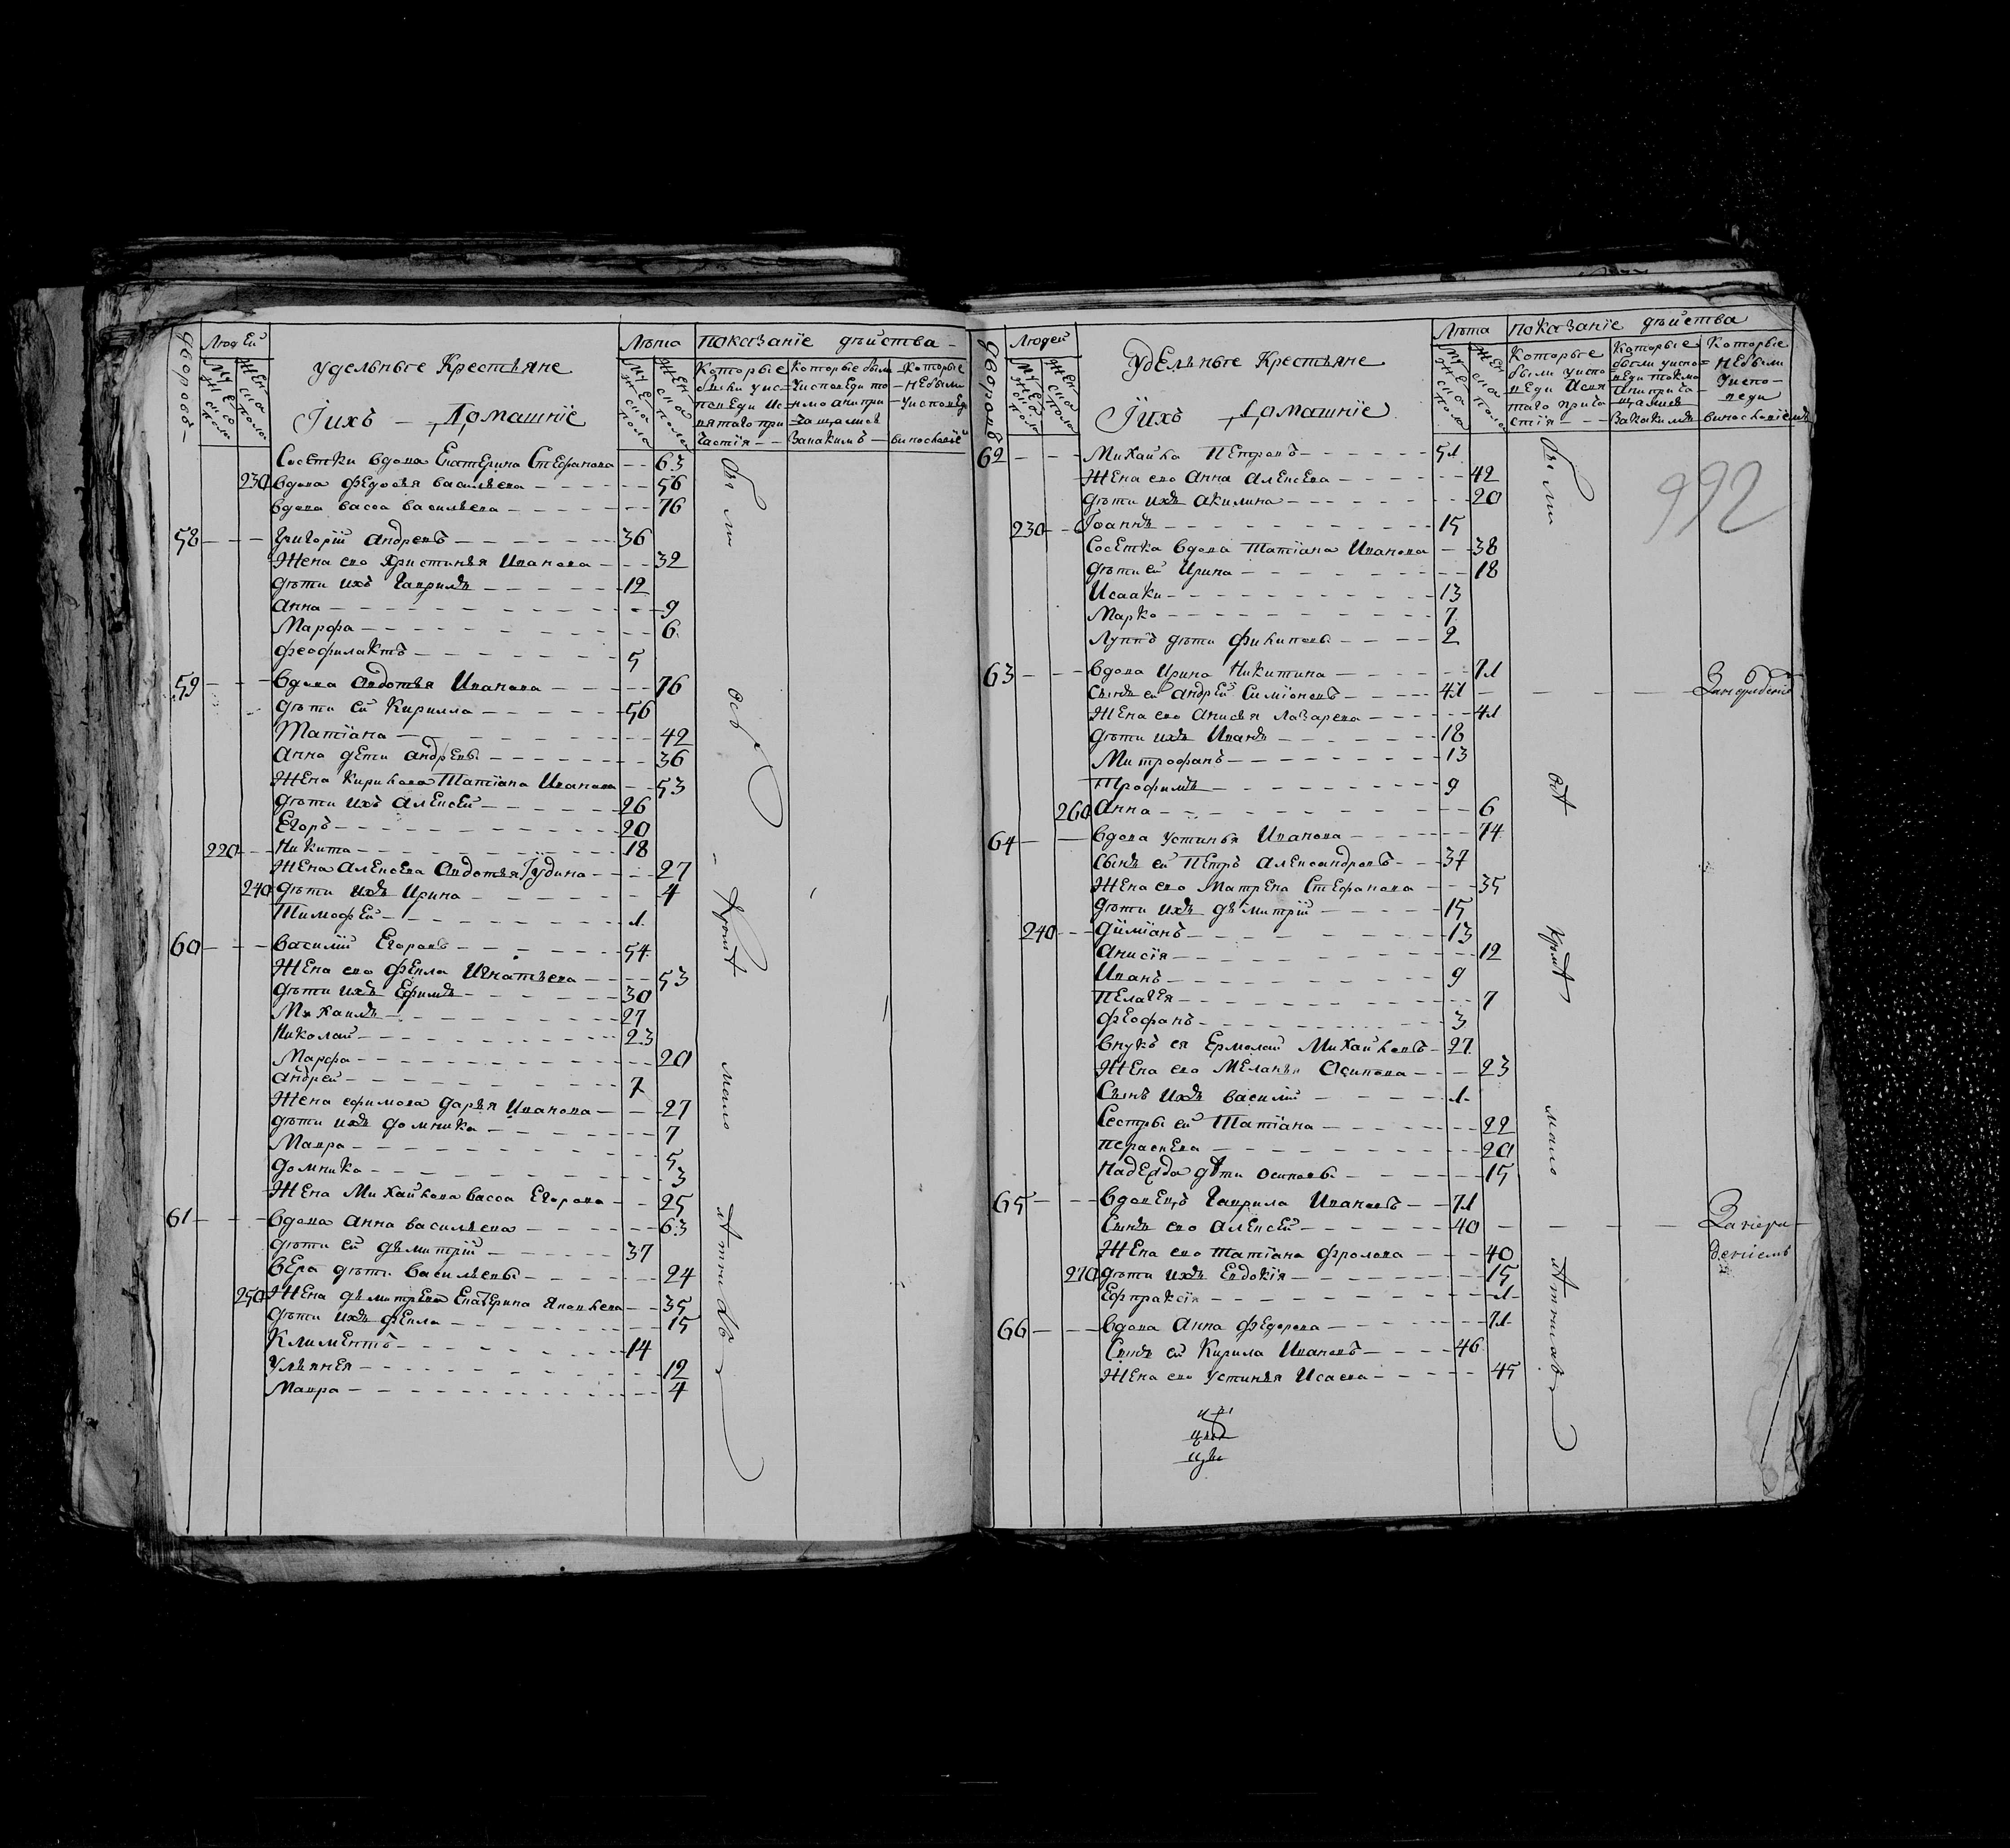 Дворовъ
Людей
Мужеско полу
Женска полу
удельные Крестьяне
Iихъ Домашнїе
Лѣта
Мужеска пола
Женска пола
показанїе дѣйства
Которые были уисповеди исвятаго причастїя
Которые были уисповеди токмо анипричащалися Закакимъ
Которые небыли уисповеди
Сосетки вдова Екатерина Стефанова 63
230 вдова федосья васильева 56
вдова васса васильева 76
58 Григорїй андреевъ 36
Жена ево Христинья Иванова 32
дѣти ихъ Гаврилъ 12
анна 9
Марфа 6
феофилактъ 5
59 вдова авдотья Иванова 76
дѣти ей Кирилла 56
Татїана 42
анна дети андреевы 36
Жена Кирилова Татїана Иванова 53
дѣти ихъ алексей 26
Егоръ 20
220 Никита 18
Жена алексева авдотья Iудина 27
240 дѣти ихъ Ирина 4
Тимофей 1
60 василїй Егоровъ 54
Жена ево фекла Игнатьева 53
дѣти ихъ Ефимъ 30
Михаилъ 27
Николай 23
Марфа 20
андрей 7
Жена ефимова дарья Иванова 27
дѣти ихъ домника 7
Мавра 5
домника 3
Жена Михайлова васса Егорова 25
61 вдова анна васильева 63
дѣти ей дьмитрїй 37
вера дѣти васильевы 24
250 Жена дьмитрева Екатерина Яковлева 35
дѣти ихъ фекла 15
Климентъ 14
Ульянея 12
Мавра 4
были
Дворовъ
Людей
Мужеско пола
Женска пола
Удельные Крестьяне
Iихъ Домашнїе
Лѣта
Мужеско пола
Женска пола
показанїе дѣйства
Которые были уисповеди исвятаго причастия
Которые были уисповеди токмо анипричащалися Закакимъ
Которые небыли уисповеди
992
62 Михайла Петровъ 51
Жена ево анна алексева 42
дѣти ихъ акилина 20
230 Iоаннъ 15
Сосетка вдова Татїана Иванова 38
дѣти ей Ирина 18
Исааки 13
Марко 7
Луппъ дѣти филиповы 2
63 вдова Ирина Никитина 71
Сынъ ей андрей Симїоновъ 41
Жена ево анисья лазарева 41
дѣти ихъ Иванъ 18
Митрофанъ 13
Трофимъ 9
260 анна 6
64 вдова устинья Иванова 74
Сынъ ей Петръ александровъ 37
Жена ево Матрена Стефанова 35
дѣти ихъ дьмитрїй 15
240 дїмїанъ 13
анисїя 12
Иванъ 9
Пелагея 7
феофанъ 3
внукъ ея Ермолай Михайловъ 27
Жена ево Меланья Осипова 23
Сынъ ихъ василїй 1
Сестры ей Татїана 22
Параскева 20
Надежда дѣти осиповы 15
65 вдовецъ Гаврила Ивановъ 71
Сынъ ево алексей 40
Жена ево татїана фролова 40
270 дѣти ихъ Евдокїя 15
Ефпраксїя 1
66 вдова анна федорова 71
Сынъ ей Кирила Ивановъ 46
Жена ево устинья Исаева 45
были